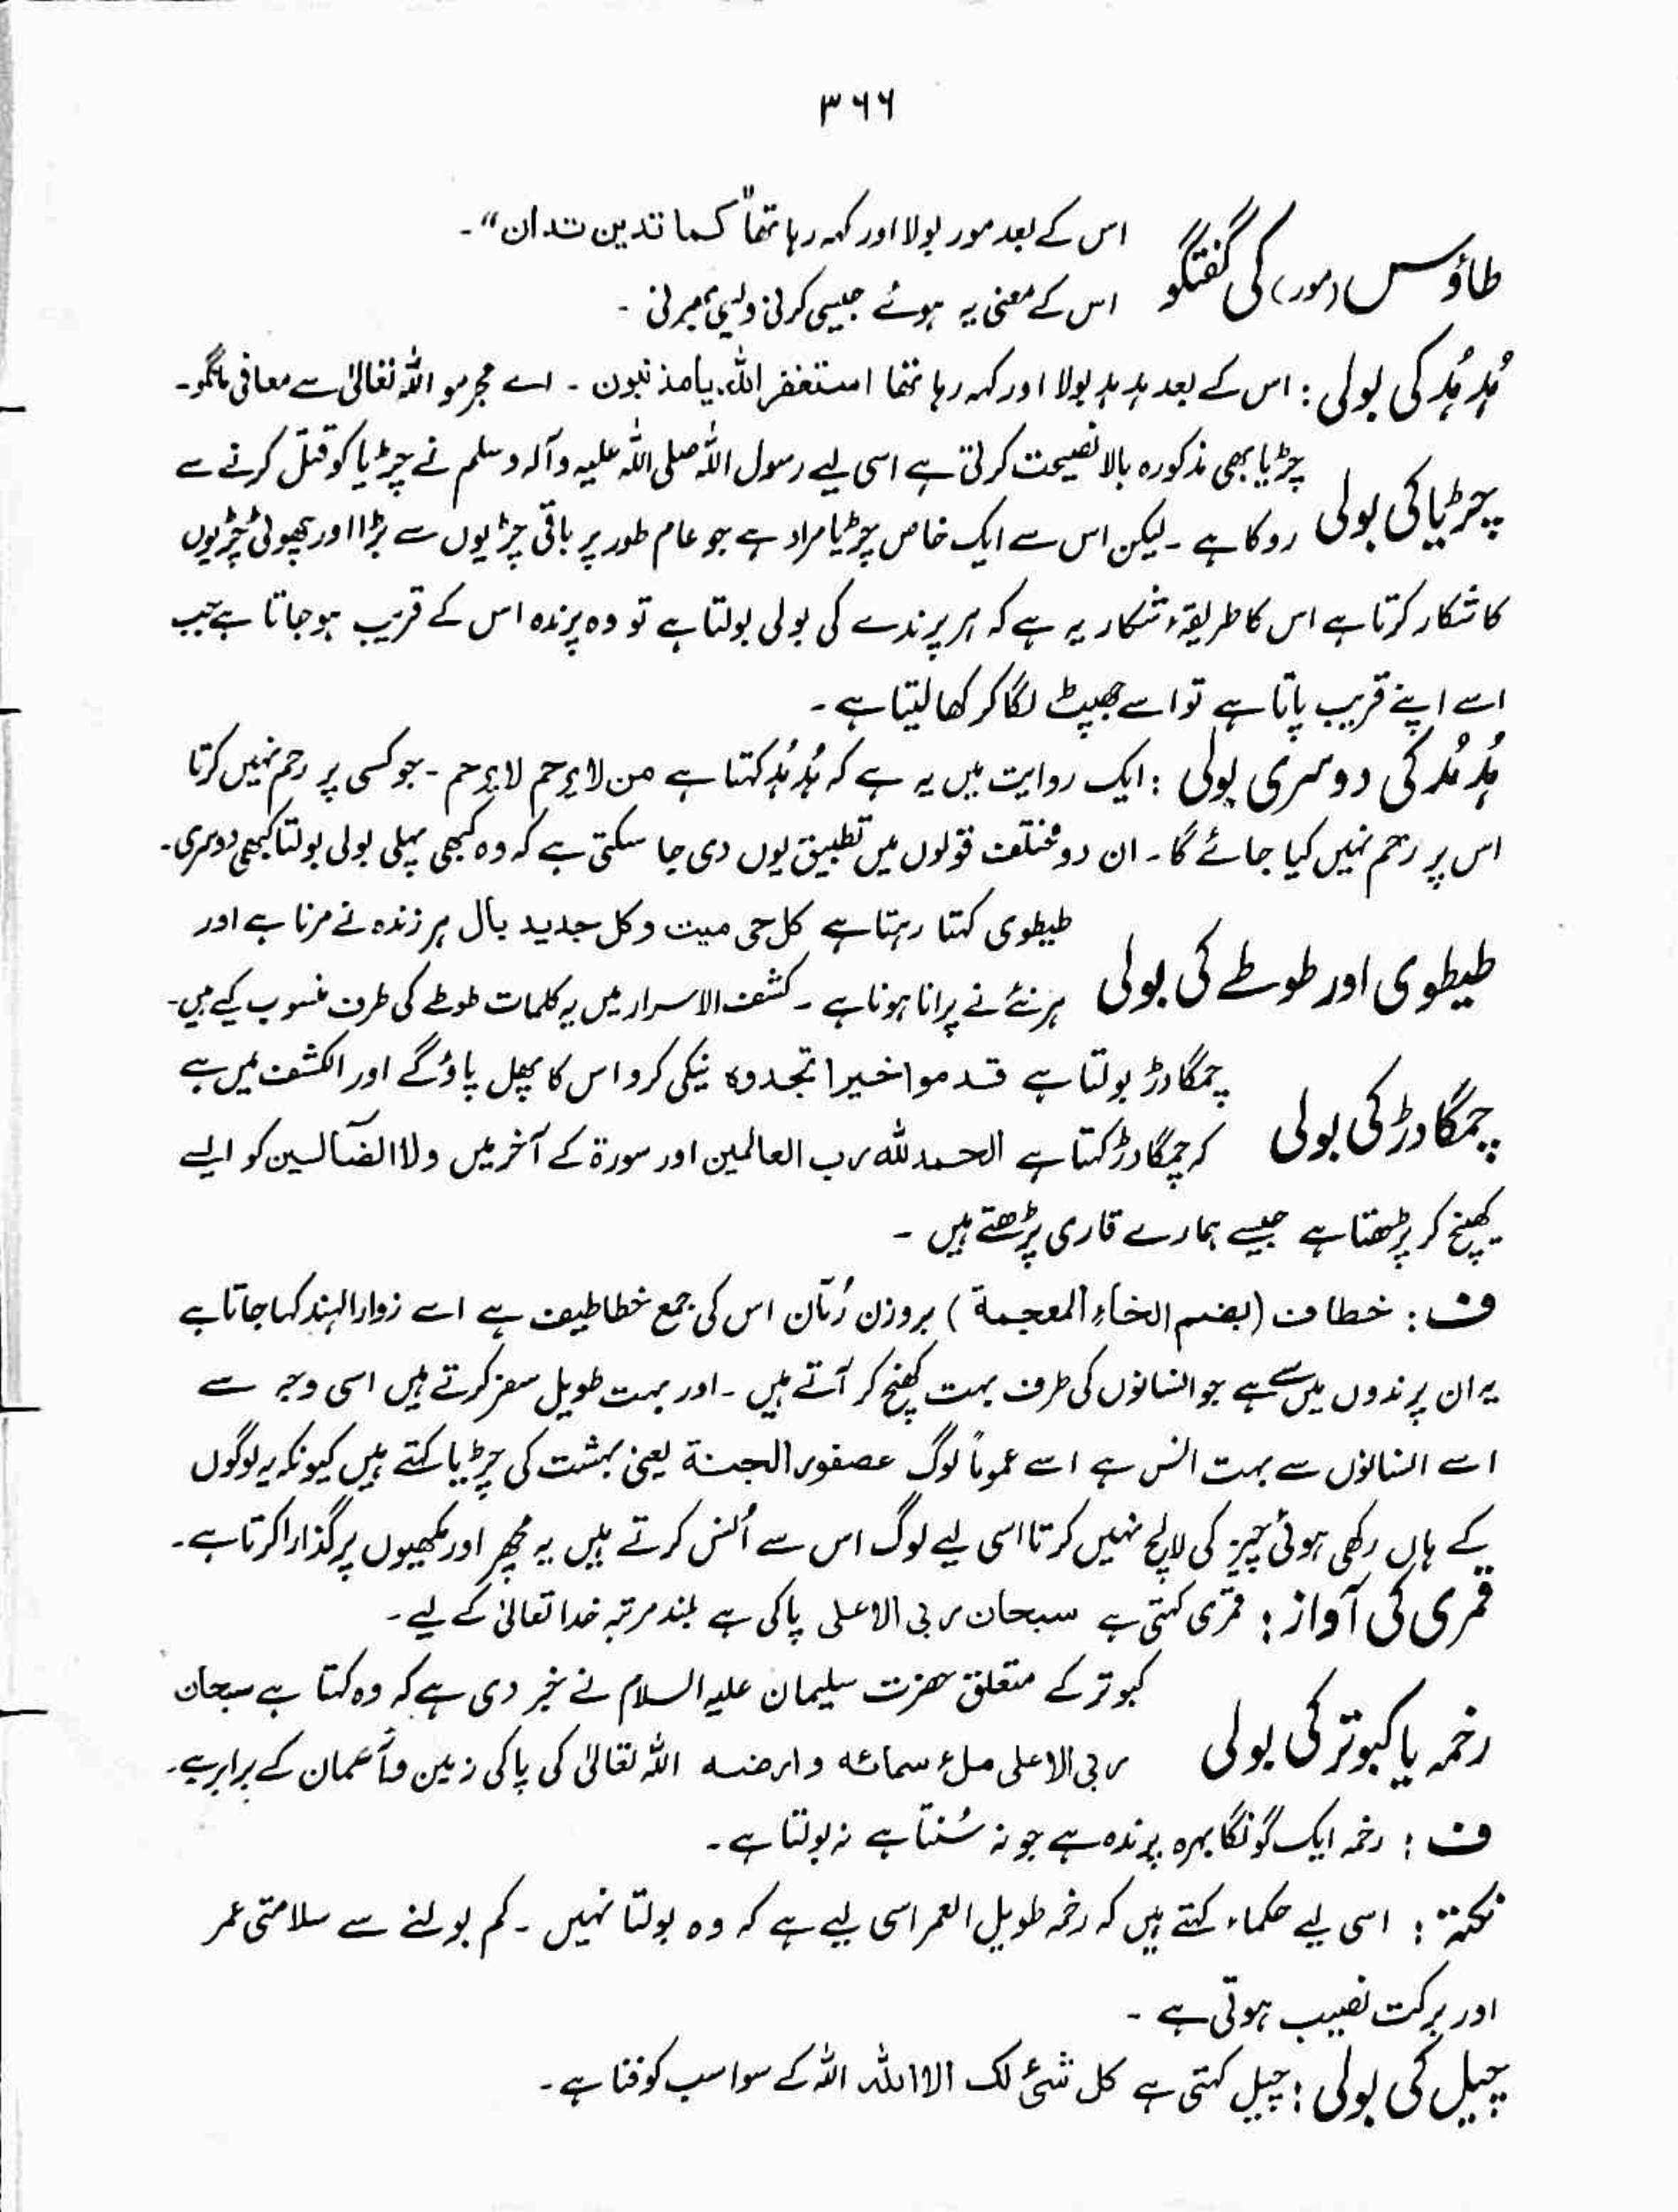 ۳۶۶
طاؤس (مور) کی گفتگو
اس کے بعد مور بولا اور کہہ رہا تھا "کما تدین تدان"۔
اس کے معنی یہ ہوئے جیسی کرنی ویسی بھرنی ۔
ہُد ہُد کی بولی : اس کے بعد ہد ہد بولا اور کہہ رہا تھا استغفر اللہ یا مذنبون ۔ اے مجرمو اللہ تعالیٰ سے معافی مانگو۔
چڑیا کی بولی
چڑیا بھی مذکورہ بالا نصیحت کرتی ہے اسی لیے رسول اللہ صلی اللہ علیہ وآلہ وسلم نے چڑیا کو قتل کرنے سے
روکا ہے ۔ لیکن اس سے ایک خاص چڑیا مراد ہے جو عام طور پر باقی چڑیوں سے بڑا اور چھوٹی چڑیوں
کا شکار کرتا ہے اس کا طریقۂ شکار یہ ہے کہ ہر پرندے کی بولی بولتا ہے تو وہ پرندہ اس کے قریب ہو جاتا ہے جب
اسے اپنے قریب پاتا ہے تو اسے جھپٹ لگا کر کھا لیتا ہے ۔
ہُد ہُد کی دوسری بولی : ایک روایت میں یہ ہے کہ ہُد ہُد کہتا ہے من لا یرحم لا یرحم ۔ جو کسی پر رحم نہیں کرتا
اس پر رحم نہیں کیا جائے گا ۔ ان دو مختلف قولوں میں تطبیق یوں دی جا سکتی ہے کہ وہ کبھی پہلی بولی بولتا کبھی دوسری۔
طیطوی اور طوطے کی بولی
طیطوی کہتا رہتا ہے کل حی میت وکل جدید بال ہر زندہ نے مرنا ہے اور
ہر نئے نے پرانا ہونا ہے ۔ کشف الاسرار میں یہ کلمات طوطے کی طرف منسوب کیے ہیں۔
چمگادڑ کی بولی
چمگادڑ بولتا ہے قدموا خیرا تجدوہ نیکی کرو اس کا پھل پاؤگے اور الکشف میں ہے
کہ چمگادڑ کہتا ہے الحمد للہ رب العالمین اور سورۃ کے آخر میں ولا الضآلین کو ایسے
کھینچ کر پڑھتا ہے جیسے ہمارے قاری پڑھتے ہیں ۔
ف : خطاف (بضم الخاء المعجمۃ) بروزن رُمّان اس کی جمع خطاطیف ہے اسے زوار الہند کہا جاتا ہے
یہ ان پرندوں میں سے ہے جو انسانوں کی طرف بہت کھنچ کر آتے ہیں ۔ اور بہت طویل سفر کرتے ہیں اسی وجہ سے
اسے انسانوں سے بہت انس ہے اسے عموماً لوگ عصفور الجنۃ یعنی بہشت کی چڑیا کہتے ہیں کیونکہ یہ لوگوں
کے ہاں رکھی ہوئی چیز کی لالچ نہیں کرتا اسی لیے لوگ اس سے اُنس کرتے ہیں یہ مچھر اور مکھیوں پر گذارا کرتا ہے۔
قمری کی آواز : قمری کہتی ہے سبحان ربی الاعلی پاکی ہے بلند مرتبہ خدا تعالیٰ کے لیے ۔
رخمہ یا کبوتر کی بولی
کبوتر کے متعلق حضرت سلیمان علیہ السلام نے خبر دی ہے کہ وہ کہتا ہے سبحان
ربی الاعلی ملء سمائہ وارضہ اللہ تعالیٰ کی پاکی زمین وآسمان کے برابر ہے۔
ف : رخمہ ایک گونگا بہرہ پرندہ ہے جو نہ سُنتا ہے نہ بولتا ہے ۔
نکتہ : اسی لیے حکماء کہتے ہیں کہ رخمہ طویل العمر اسی لیے ہے کہ وہ بولتا نہیں ۔ کم بولنے سے سلامتی عمر
اور برکت نصیب ہوتی ہے ۔
چیل کی بولی : چیل کہتی ہے کل شئ لک الا اللہ اللہ کے سوا سب کو فنا ہے ۔